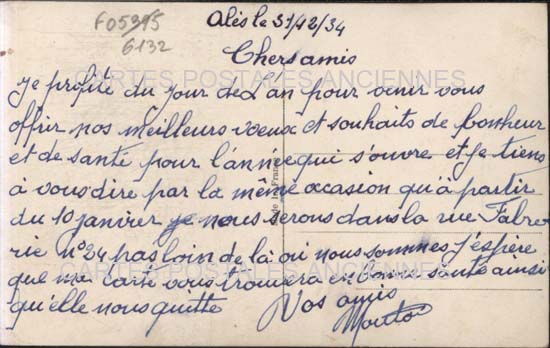 F05395
6132
Alès le 31/12/34
Chers amis
CARTES POSTALES ANCIENNES
Je profite du jour de L'an pour venir vous
offrir nos meilleurs voeux et souhaits de bonheur
et de santé pour l'année qui s'ouvre et je tiens
à vous dire par la même ocasion qu'à partir
du 10 janvier je nous serons dans la rue Fabre
rie n° 24 pas loin de la où nous sommes j'espère
que ma carte vous trouvera en bonne santé ainsi
CARTES POSTALES ANCIENNES
qu'elle nous quitte Vos amis